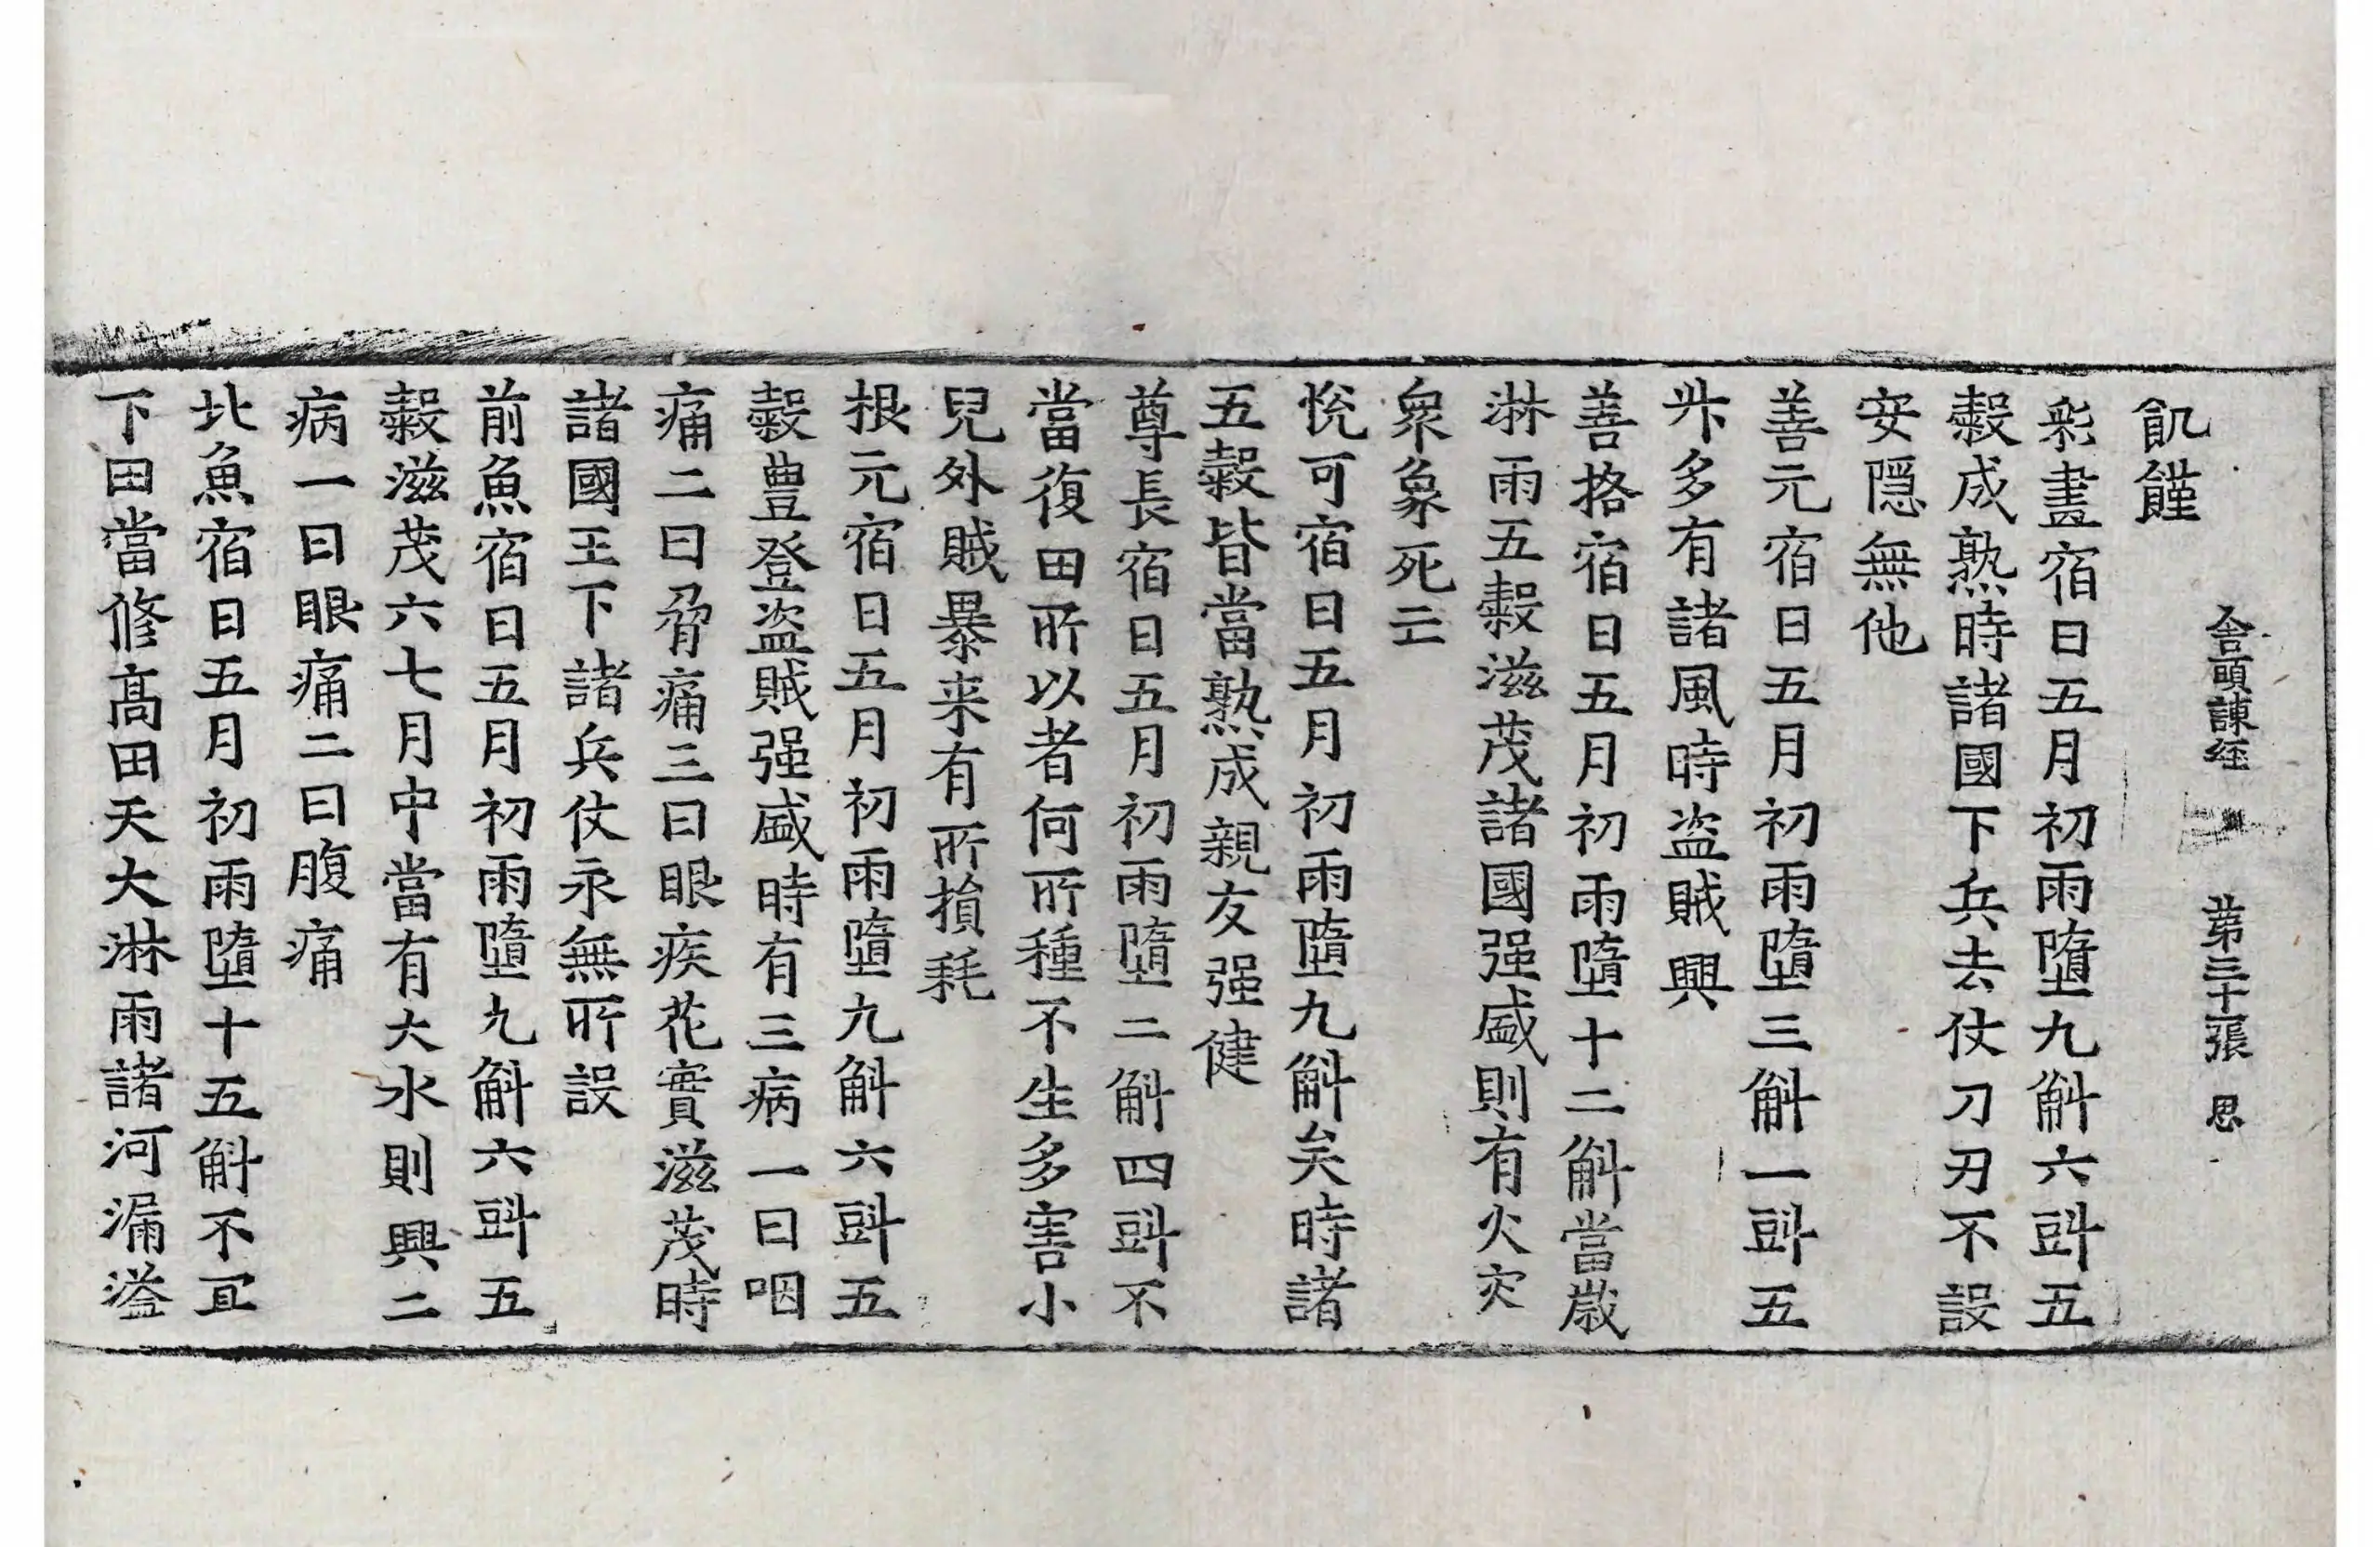 飢饉
舍頭諫経 第三十張 思
彩畫宿日五月初雨墮九斛六㪷五
糓成熟時諸國下兵去仗刀刃不設
安隱無他
善元宿日五月初雨墮三斛一㪷五
升多有諸風時盗賊興
善挌宿日五月初雨墮十二斛當歲
淋雨五糓滋茂諸國强盛則有火灾
衆象死亡
恱可宿日五月初雨墮九斛矣時諸
五糓皆當熟成親友强健
尊長宿日五月初雨墮二斛四㪷不
當復田所以者何所種不生多害小
兒外賊暴来有所損耗
根元宿日五月初雨墮九斛六㪷五
糓豊登盗賊强盛時有三病一曰咽
痛二曰脅痛三曰眼疾花實滋茂時
諸國王下諸兵仗永無所設
前魚宿日五月初雨墮九斛六㪷五
糓滋茂六七月中當有大水則興二
病一曰眼痛二曰腹痛
北魚宿日五月初雨墮十五斛不冝
下田當修髙田天大淋雨諸河漏溢